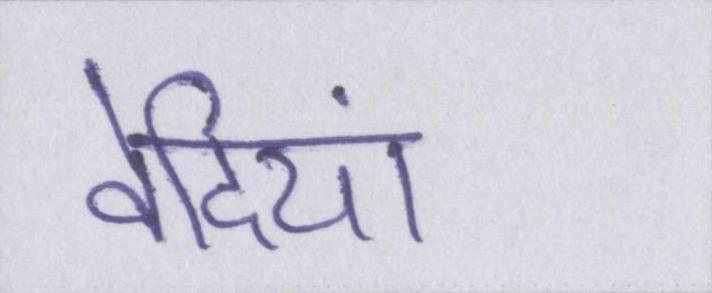 वेदियां